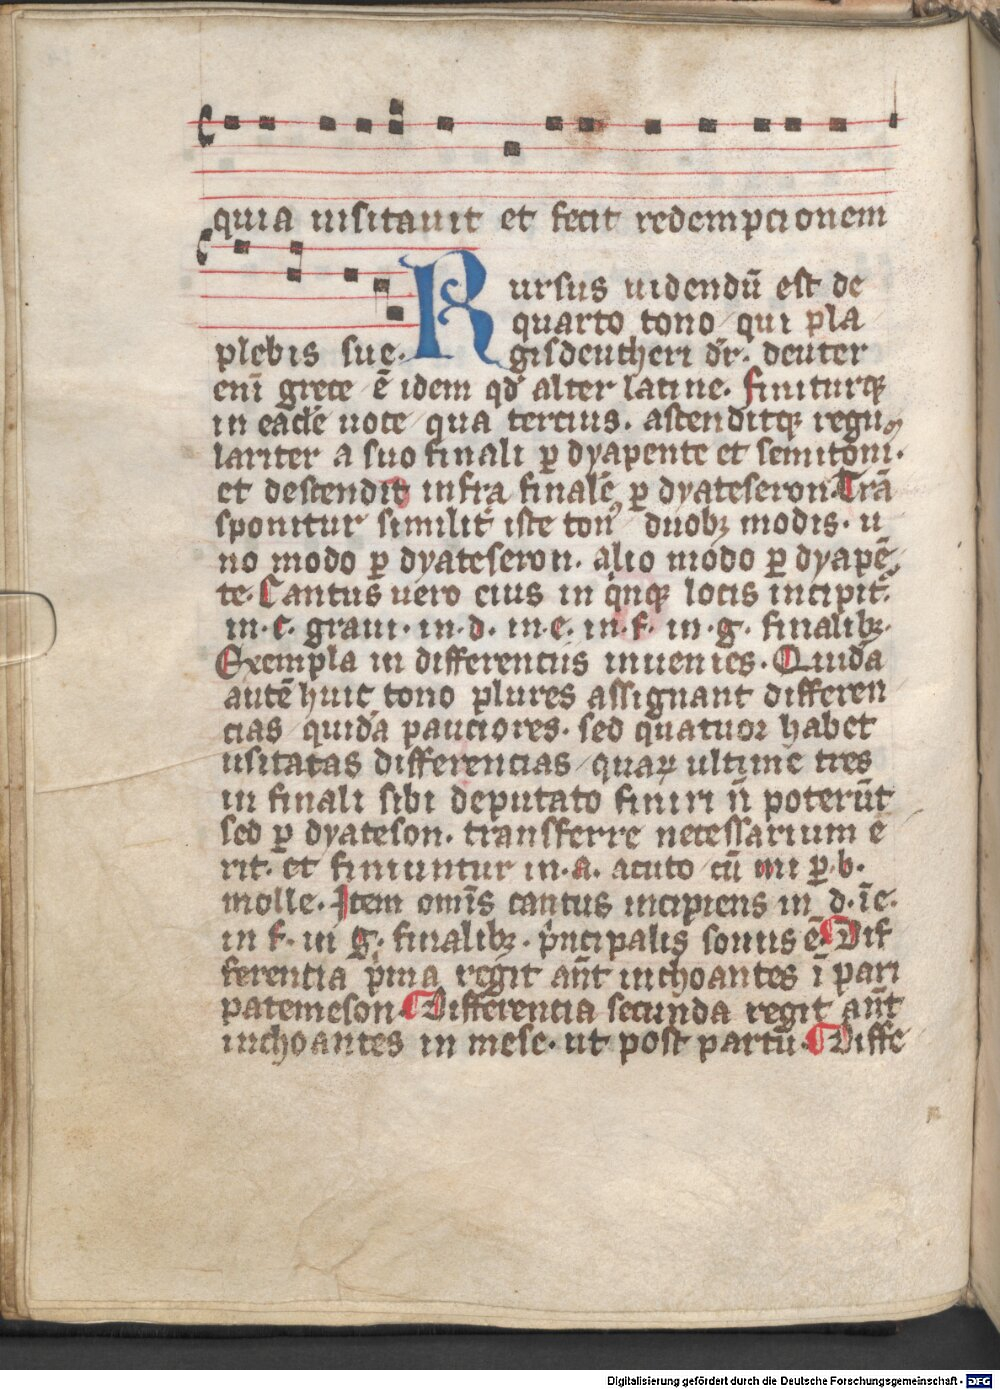 quia uisitauit et fecit redempcionem
Rursus uidendū est de
quarto tono qui pla
plebis sue.
gisdeutheri dr̄. deuter
eni grece ē idem qd̓ alter latine. finiturqꝫ
in eadē uoce qua tercius. ascenditqꝫ regu
lariter a suo finali ꝑ dyapente et semitoni.
et descendit infra finalē ꝑ dyateseron. Trā
sponitur similit̓ iste ton᷒ duobꝫ modis. u
no modo ꝑ dyateseron. alio modo ꝑ dyapē
te. Cantus uero eius in qͥnqꝫ locis incipit.
in .c. graui. in .d. in .e. in .f. in .g. finalibꝫ.
Exempla in differenciis inuenies. Quidā
autē huic tono plures assignant differen
cias quidā pauciores. sed quatuor habet
usitatas differencias quaꝝ ultime tres
in finali sibi deputato finiri n̄ poterūt
sed ꝑ dyateson. transferre necessarium e
rit. et finiuntur in .a. acuto cū mi ꝑ .b.
molle. Item omīs cantus incipiens in d. ī e.
in f. in g. finalibꝫ. pͥncipalis sonus ē. Dif
ferentia pͥma regit an̄t inchoantes ī pari
patemeson. Differentia secunda regit an̄t
inchoantes in mese. ut post partū. Diffe
Digitalisierung gefördert durch die Deutsche Forschungsgemeinschaft - DFG